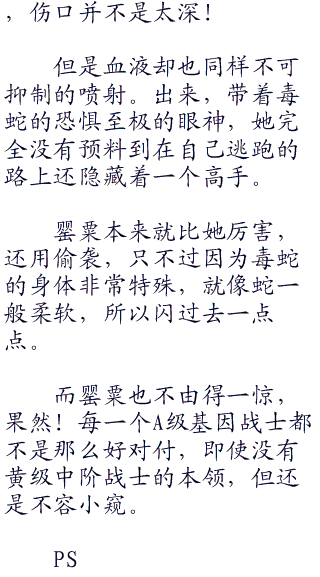 ，伤口并不是太深！
但是血液却也同样不可
抑制的喷射。出来，带着毒
蛇的恐惧至极的眼神，她完
全没有预料到在自己逃跑的
路上还隐藏着一个高手。
罂粟本来就比她厉害，
还用偷袭，只不过因为毒蛇
的身体非常特殊，就像蛇一
般柔软，所以闪过去一点
点。
而罂粟也不由得一惊，
果然！每一个A级基因战士都
不是那么好对付，即使没有
黄级中阶战士的本领，但还
是不容小窥。
PS